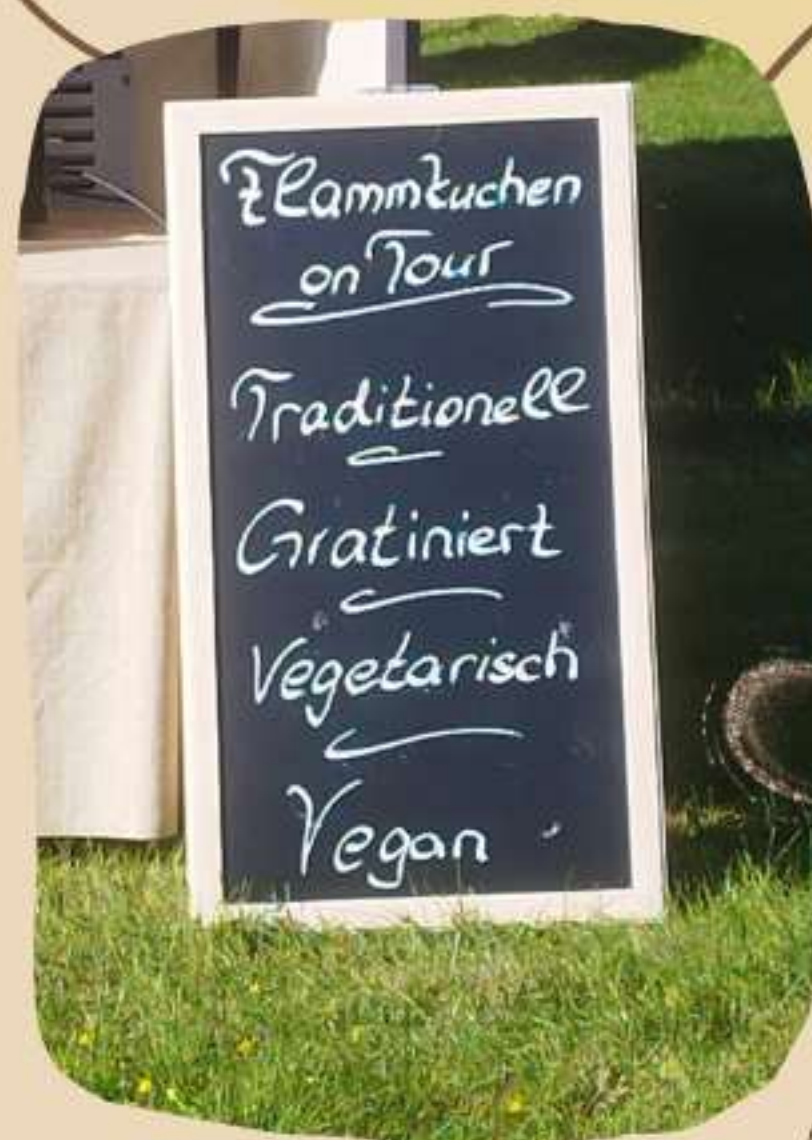 Flammkuchen
on Tour
Traditionell
Gratiniert
Vegetarisch
Vegan